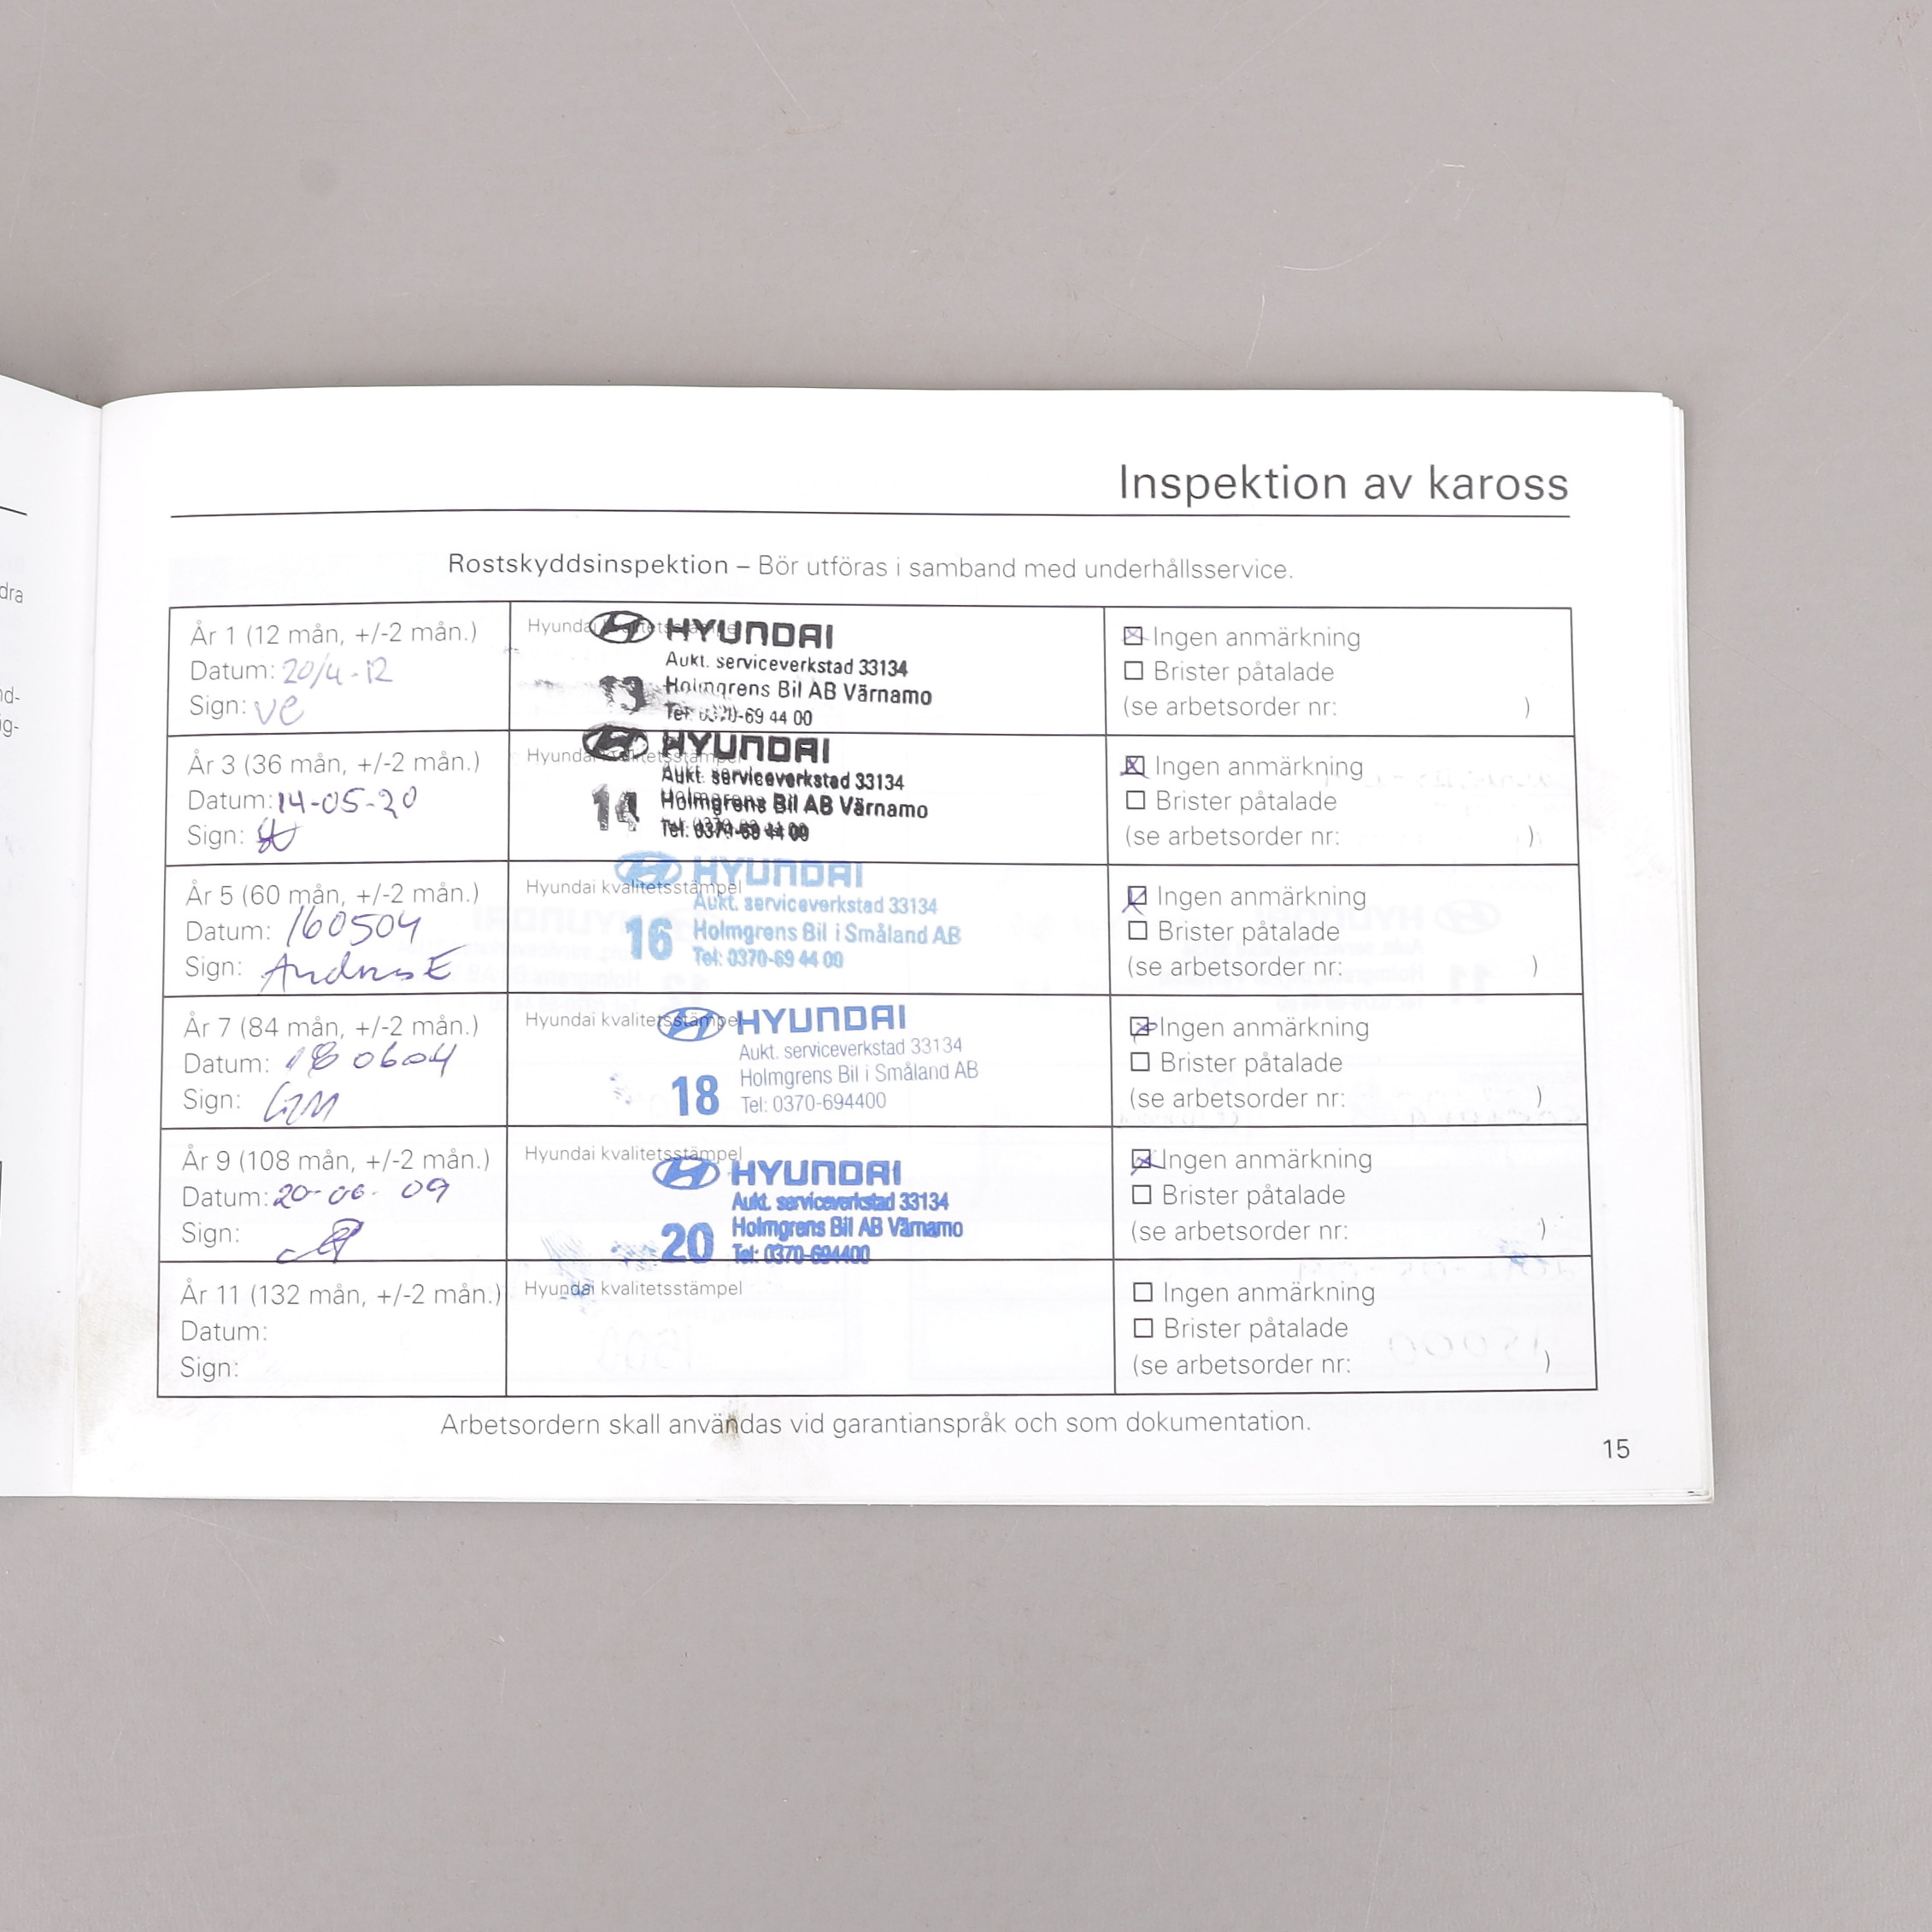 dra
nd-
ig-
Inspektion av kaross
Rostskyddsinspektion – Bör utföras i samband med underhållsservice.
År 1 (12 mån, +/-2 mån.)
Datum: 20/4-12
Sign: ve
HYUNDAI
Aukt. serviceverkstad 33134
13 Holmgrens Bil AB Värnamo
Tel: 0370-69 44 00
Ingen anmärkning
Brister påtalade
(se arbetsorder nr: )
År 3 (36 mån, +/-2 mån.)
Datum: 14-05-20
Sign:
HYUNDAI
Aukt. serviceverkstad 33134
14 Holmgrens Bil AB Värnamo
Tel: 0370-69 44 00
Ingen anmärkning
Brister påtalade
(se arbetsorder nr: )
År 5 (60 mån, +/-2 mån.)
Datum: 160504
Sign: Andreas E
Hyundai kvalitetsstämpel
HYUNDAI
Aukt. serviceverkstad 33134
16 Holmgrens Bil i Småland AB
Tel: 0370-69 44 00
Ingen anmärkning
Brister påtalade
(se arbetsorder nr: )
År 7 (84 mån, +/-2 mån.)
Datum: 180604
Sign:
Hyundai kvalitetsstämpel
HYUNDAI
Aukt. serviceverkstad 33134
18 Holmgrens Bil i Småland AB
Tel: 0370-694400
Ingen anmärkning
Brister påtalade
(se arbetsorder nr: )
År 9 (108 mån, +/-2 mån.)
Datum: 20-06-09
Sign:
Hyundai kvalitetsstämpel
HYUNDAI
Aukt. serviceverkstad 33134
20 Holmgrens Bil AB Värnamo
Tel: 0370-694400
Ingen anmärkning
Brister påtalade
(se arbetsorder nr: )
År 11 (132 mån, +/-2 mån.)
Datum:
Sign:
Hyundai kvalitetsstämpel
Ingen anmärkning
Brister påtalade
(se arbetsorder nr: )
Arbetsordern skall användas vid garantianspråk och som dokumentation.
15